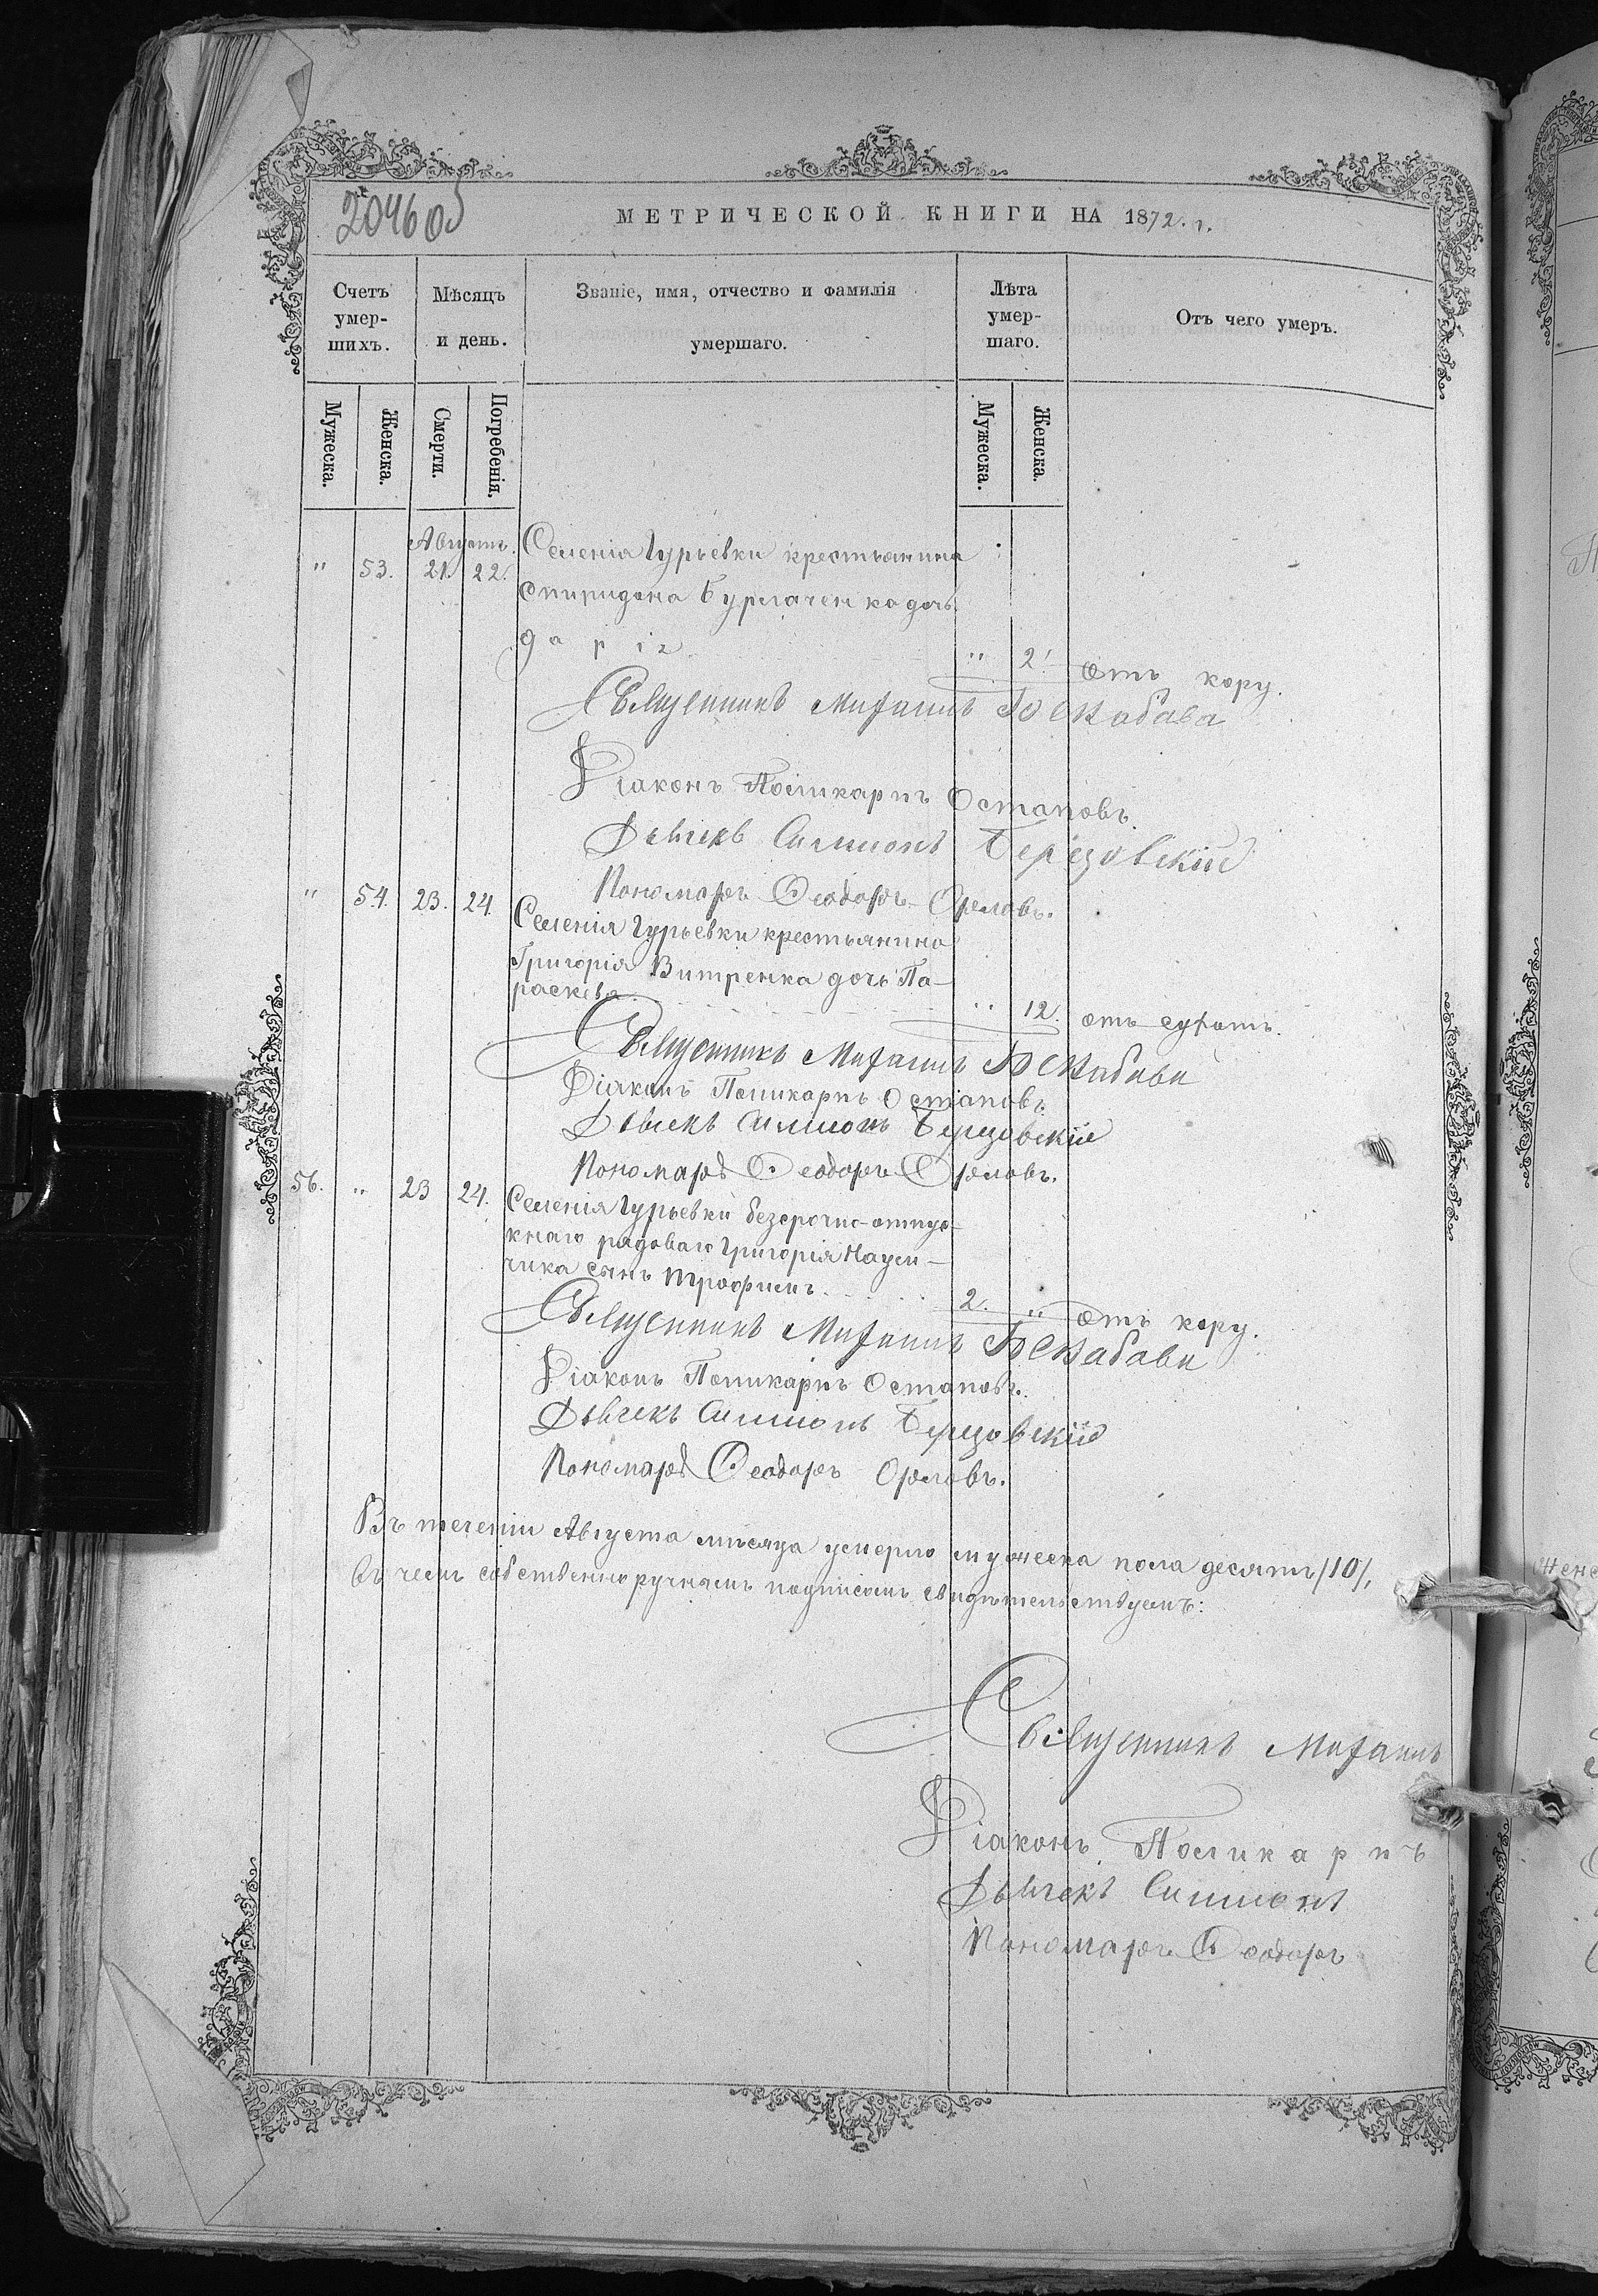 2046 об
МЕТРИЧЕСКОЙ КНИГИ НА 1872. г.
Счетъ умер-шихъ.
Мѣсяцъ и день.
Званіе, имя, отчество и фамилія умершаго.
Лѣта умер-шаго.
Отъ чего умеръ.
Мужеска.
Женска.
Смерти.
Погребенія.
Мужеска.
Женска.
Августъ.
" 53. 21. 22. Селенія Гурьевки крестьянина
Спиридона Бурлаченка дочь
Дарія " 2. отъ кору.
Священникъ Михаилъ
Діаконъ Поликарпъ Остаповъ.
Дьячекъ Симеонъ Березовскій
Пономарь Ѳеодоръ Орловъ.
" 54. 23. 24. Селенія Гурьевки крестьянина
Григорія Витренка дочь Па-
раскева " 12. отъ сухотъ.
Священникъ Михаилъ
Діаконъ Поликарпъ Остаповъ.
Дьячекъ Симеонъ Березовскій
Пономарь Ѳеодоръ Орловъ.
56. " 23 24. Селенія Гурьевки безсрочно-отпус-
кнаго рядоваго Григорія
чика сынъ Трофимъ. 2. " отъ кору.
Священникъ Михаилъ
Діаконъ Поликарпъ Остаповъ.
Дьячекъ Симеонъ Березовскій
Пономарь Ѳеодоръ Орловъ.
Въ теченіи Августа мѣсяца умерло мужеска пола десять /10/,
въ чемъ собственноручнымъ подписомъ свидѣтельствуемъ:
Священникъ Михаилъ
Діаконъ Поликарпъ
Дьячекъ Симеонъ
Пономарь Ѳеодоръ